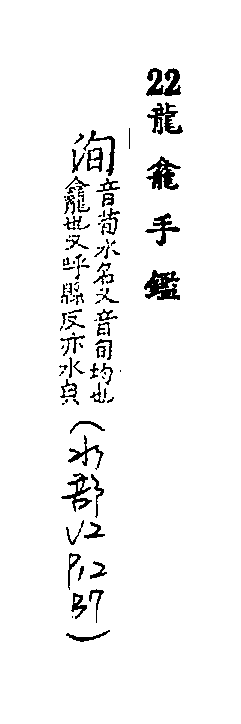 22龍龕手鑑
洵音荀水名又音旬均也
龕也又呼縣反亦水㒵
(水部
V2
P12
B7)